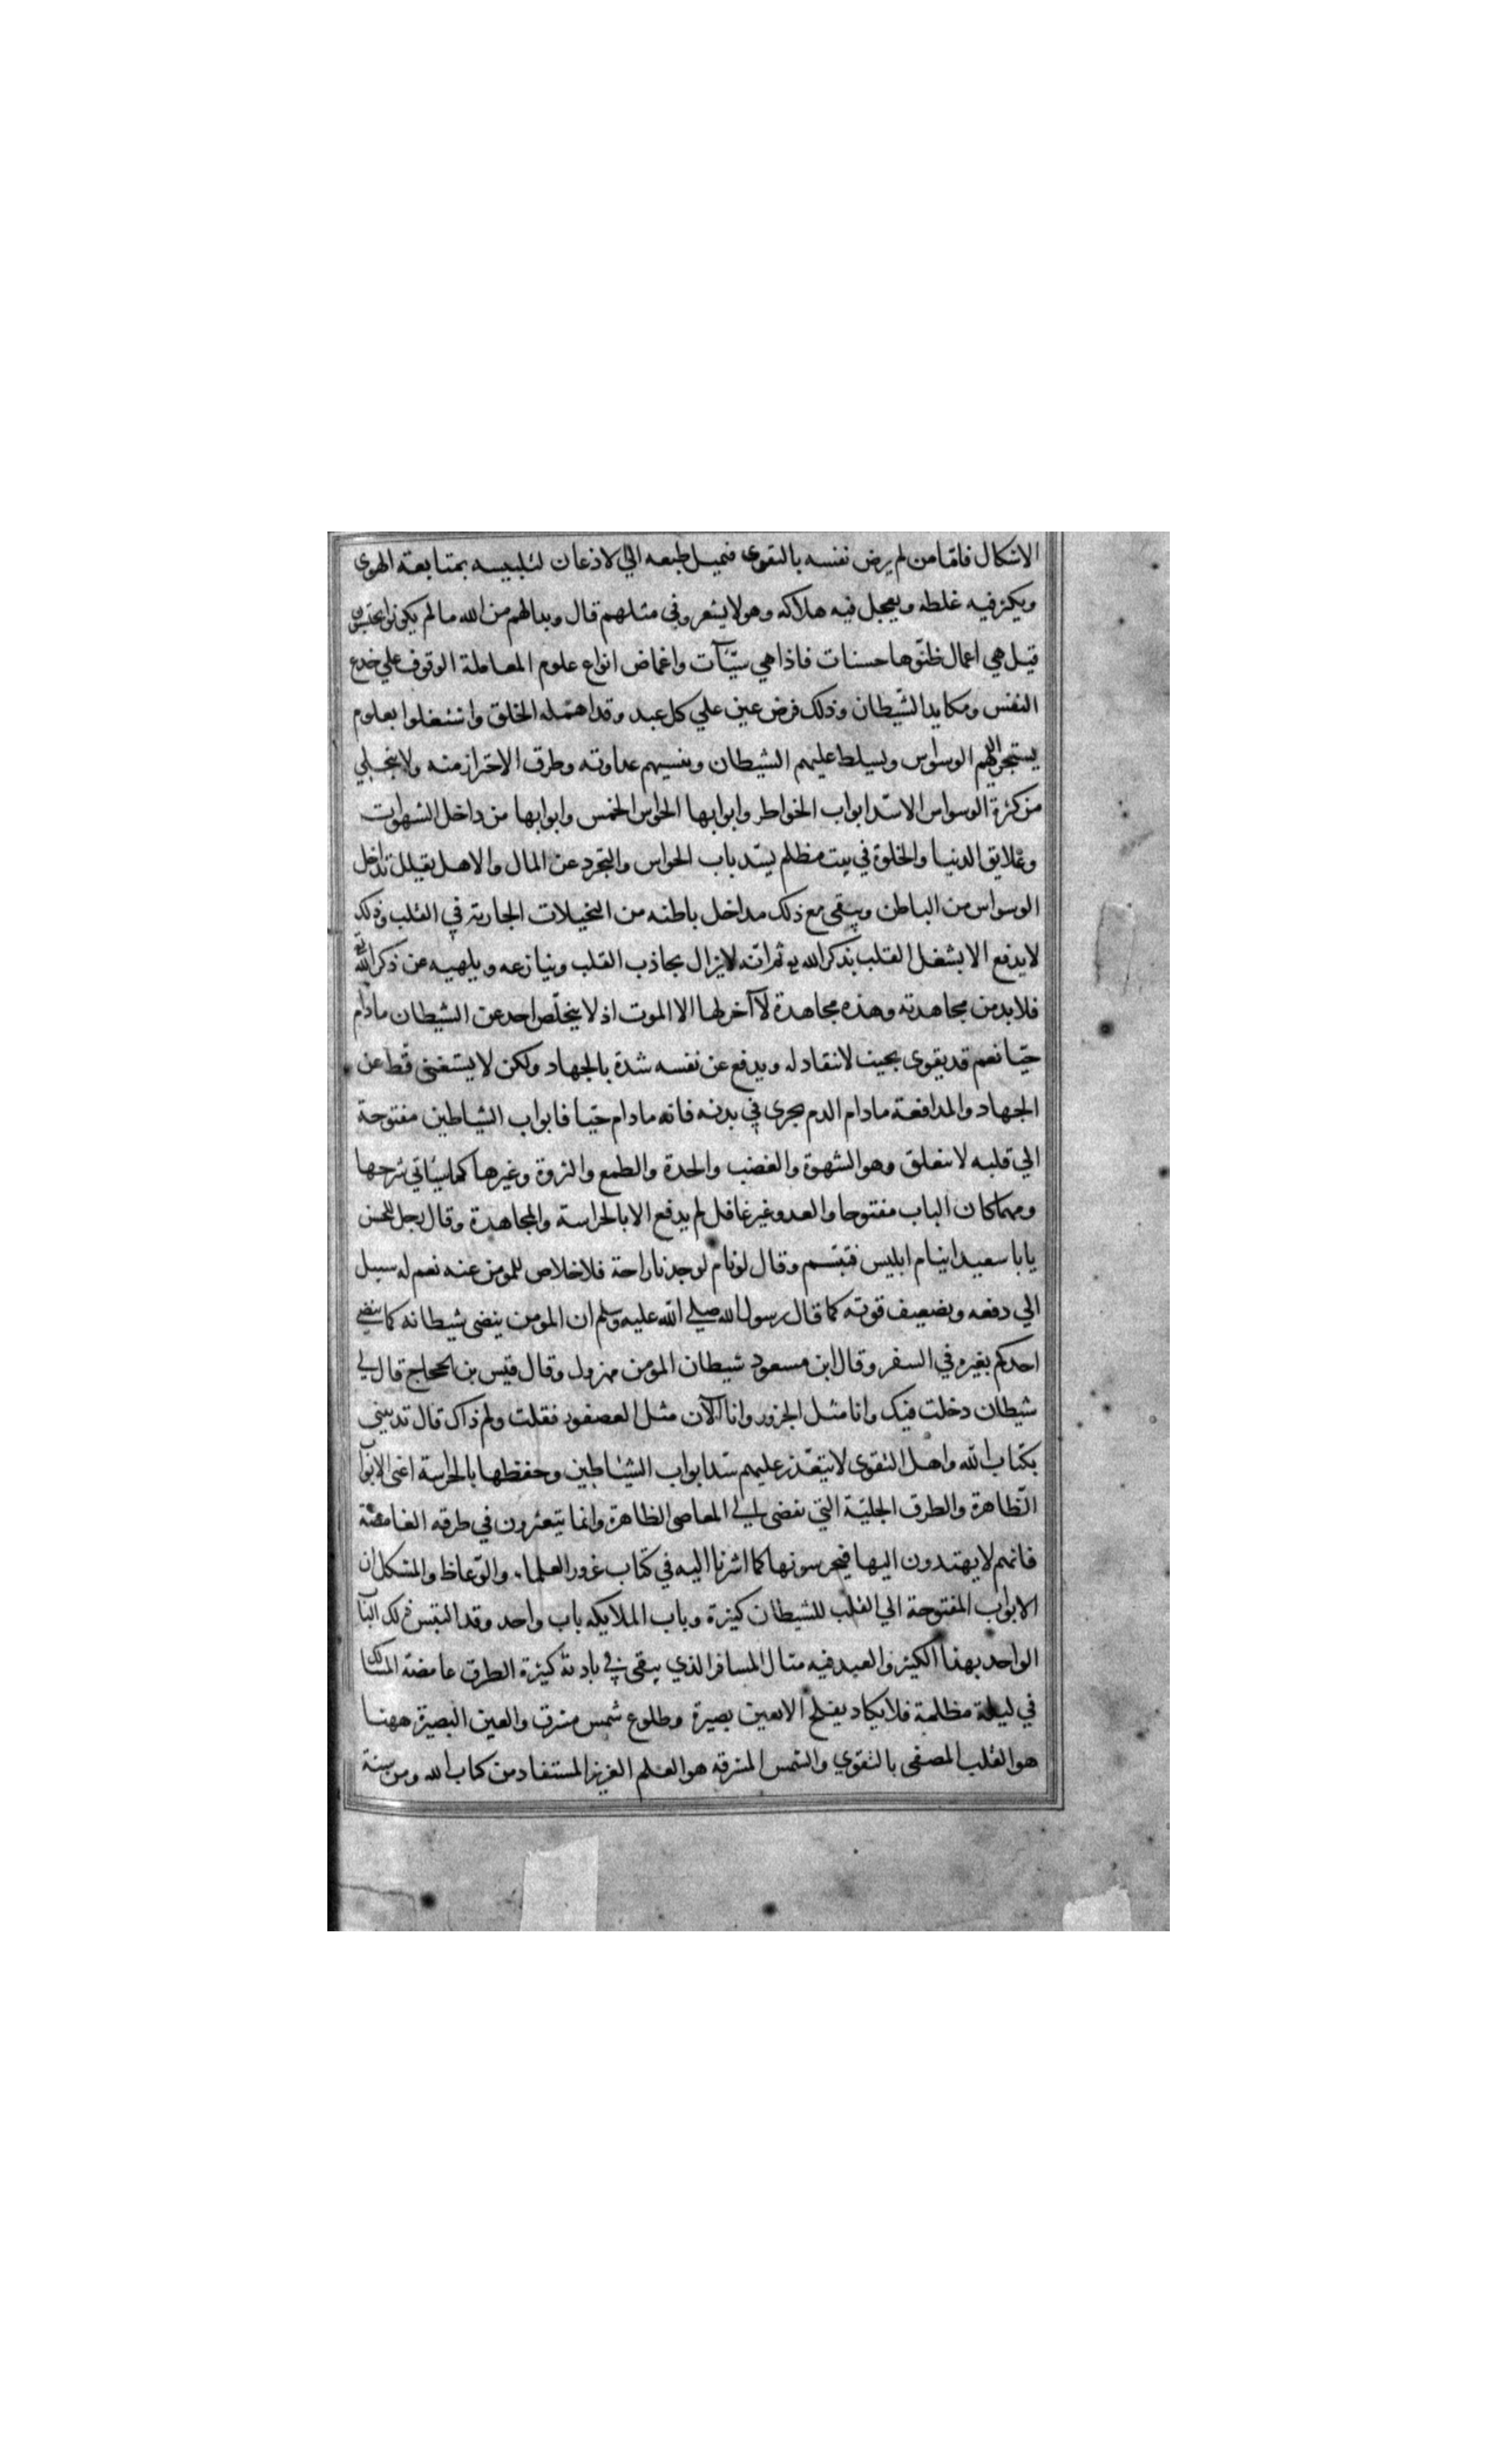 الاشكال فامّا من لم يرض نفسه بالتقوى فيميل طبعه الي الاذعان لتلبيسه بمتابعة الهوي
ويكثر فيه غلطه ويعجل فيه هلاكه وهو لا يشعر وفي مثلهم قال وبدا لهم من الله ما لم يكونوا يحتسبون
قيل هي اعمال ظنّوها حسنات فاذا هي سيّئآت واغماض انواع علوم المعاملة الوقوف علي خدع
النفس ومكايد الشّيطان وذلك فرض عين علي كل عبد وقد اهمّله الخلق واشتغلوا بعلوم
يستجر اليهم الوسواس ويسلط عليهم الشيطان وينسيهم عداوته وطرق الاحتراز منه ولا ينجلي
من كثرة الوسواس الا سّد ابواب الخواطر وابوابها الحواس الخمس وابوابها من داخل الشهوات
وعلايق الدنيا والخلوة في بيت مظلم يسّد باب الحواس والتجرد عن المال والاهل يقيلل تداخل
الوسواس من الباطن ويبقى مع ذلك مداخل باطنه من التخيلات الجارية في القلب وذلك
لا يدفع الا بشغل القلب بذكر الله ثم انه لا يزال يجاذب القلب وينازعه ويلهيه عن ذكر الله
فلا بد من مجاهدته وهذه مجاهدة لآ آخر لها الا الموت اذ لا يتخلّص احد عن الشيطان مادام
حيّا نعم قد يقوى بحيث لا ينقاد له ويدفع عن نفسه شدة بالجهاد ولكن لا يستغنى قط عن
الجهاد والمدافعة مادام الدم يجرى في بدنه فانه مادام حيّا فابواب الشياطين مفتوحة
الي قلبه لا تنغلق وهو الشهوة والغضب والحدة والطمع والثروة وغيرها كما سيأتي شرحها
ومهما كان الباب مفتوحا والعدو غير غافل لم يدفع الا بالحراسة والمجاهدة وقال رجل للحسن
يابا سعيد اينام ابليس فتبسّم وقال لو نام لوجدنا راحة فلا خلاص للمومن عنه نعم له سبيل
الي دفعه وتضعيف قوته كما قال رسول الله صلي الله عليه وسلم ان المومن ينضى شيطانه كما ينضي
احدكم بغيره في السفر وقال ابن مسعود شيطان المومن مهزول وقال قيس بن الحجاج قال لي
شيطان دخلت فيك وانا مثل الجزور وانا الآن مثل العصفور فقلت ولم ذاك قال تديبني
بكتاب الله واهل التقوى لا يتعّذر عليهم سّد ابواب الشيّاطين وحفظها بالحراسة اعنى الابواب
الظّاهرة والطرق الجليّة التي تفضى الي المعاصى الظاهرة وانما يتعثرون في طرقه الغامضة
فانهم لا يهتدون اليها فيحرسونها كما اشرنا اليه في كتاب غرور العلماء والوّعاظ والمشكل ان
الابواب المفتوحة الي القلب للشيطان كثيرة وباب الملايكه باب واحد وقد التبس ذلك الباب
الواحد بهذا الكثير والعبد فيه مثال المسافر الذي يبقى في بادية كثيرة الطرق غامضة المسالك
في ليلة مظلمة فلا يكاد يفلح الا بعين بصيرة وطلوع شمس مشرق والعين البصيرة ههنا
هو القلب المصفى بالتقوي والشمس المشرقه هو العلم الغزيز المستفاد من كتاب الله ومن سنة